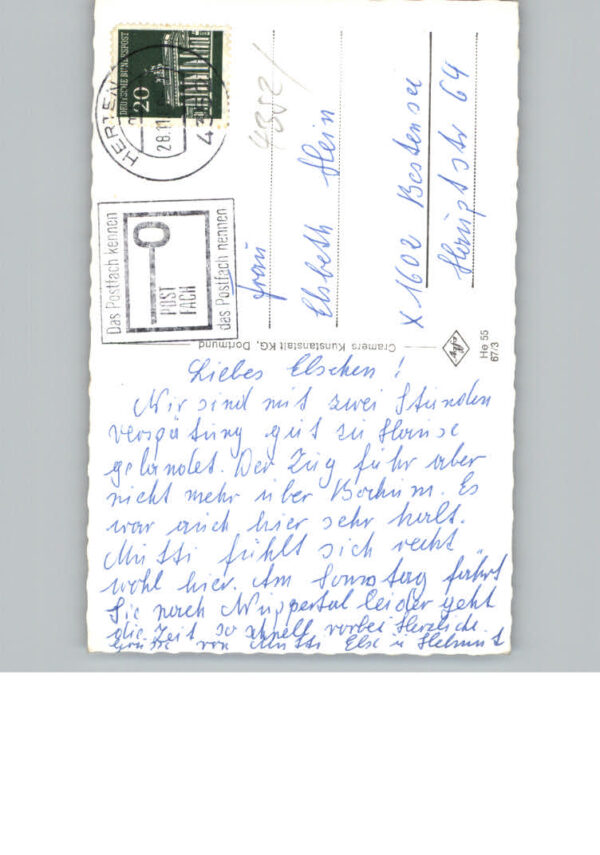 Liebes Elschen!
Wir sind mit zwei Stunden
Verspätung gut zu Hause
gelandet. Der Zug fuhr aber
nicht mehr über Bochum. Es
war auch hier sehr kalt.
Mutti fühlt sich recht
wohl hier. Am Sonntag fährt
Sie nach Wuppertal leider geht
die Zeit so schnell vorbei Herzliche
Grüsse von Mutti Else u Helmut
Cramers Kunstanstalt KG, Dortmund
He 55
67/3
DEUTSCHE BUNDESPOST
20
HERTEN
28.11
Das Postfach kennen
POST
FACH
das Postfach nennen
4352/
Frau
Elsbeth Hein
X 1602 Bestensee
Hauptstr 64